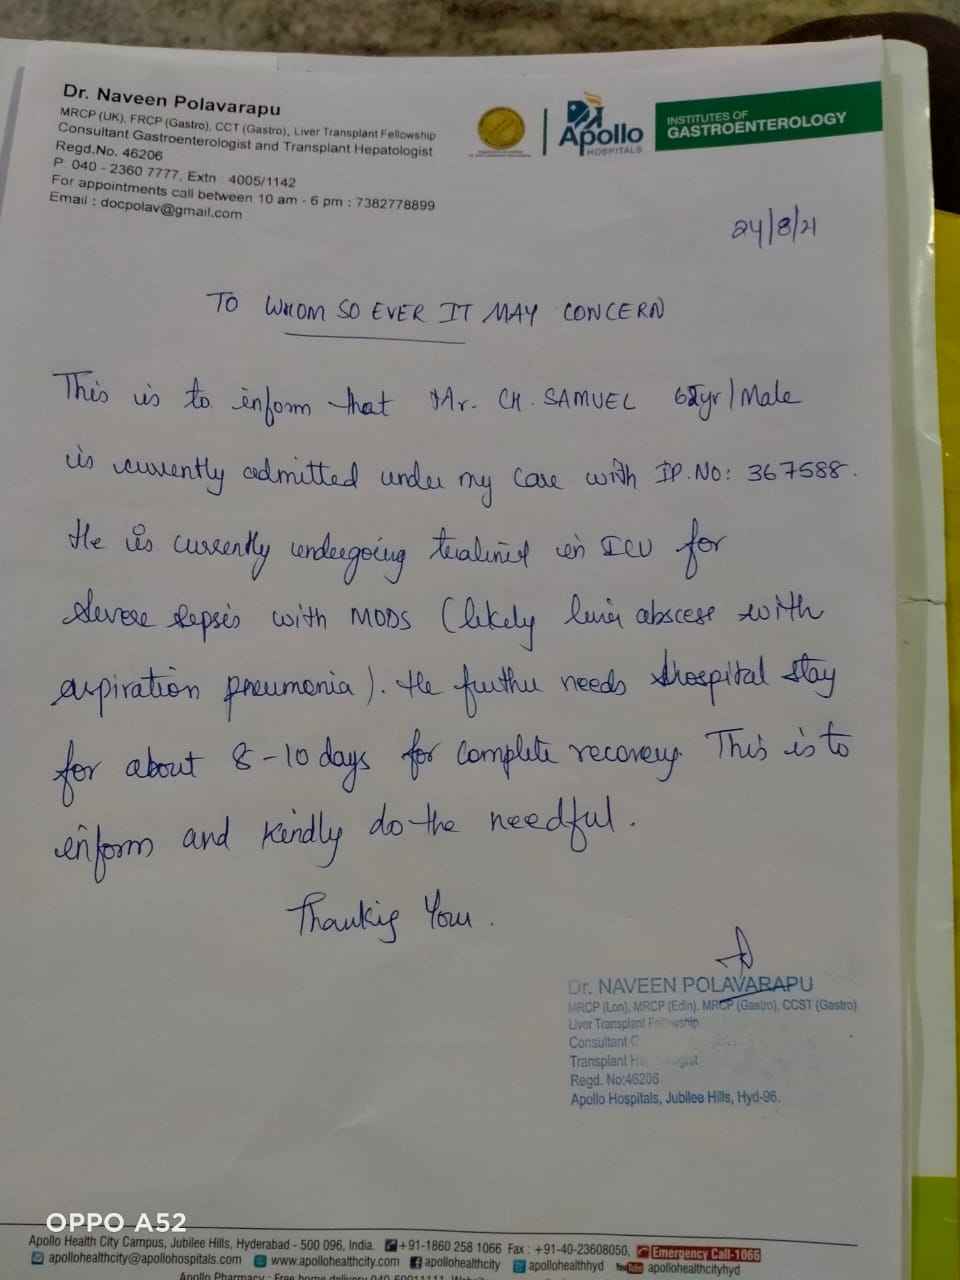 Dr. Naveen Polavarapu
MRCP (UK), FRCP (Gastro), CCT (Gastro), Liver Transplant Fellowship
Consultant Gastroenterologist and Transplant Hepatologist
Regd.No. 46206
P 040 - 2360 7777, Extn 4005/1142
For appointments call between 10 am - 6 pm : 7382778899
Email : docpolav@gmail.com
Apollo
HOSPITALS
INSTITUTES OF
GASTROENTEROLOGY
24/8/21
TO WHOM SO EVER IT MAY CONCERN
This is to inform that Mr. CH. SAMUEL 62yr/Male
is currently admitted under my care with IP.NO: 367588.
He is currently undergoing in ICU for
severe sepsis with MODS (likely liver abscess with
aspiration pneumonia). He further needs hospital stay
for about 8-10 days for complete recovery. This is to
inform and kindly do the needful.
Thanking You.
Dr. NAVEEN POLAVARAPU
MRCP (Lon), MRCP (Edin), MRCP (Gastro), CCST (Gastro)
Liver Transplant Fellowship
Consultant
Transplant
Regd. No:46206
Apollo Hospitals, Jubilee Hills, Hyd-96.
OPPO A52
Apollo Health City Campus, Jubilee Hills, Hyderabad - 500 096, India. +91-1860 258 1066 Fax : +91-40-23608050, Emergency Call-1066
apollohealthcity@apollohospitals.com www.apollohealthcity.com apollohealthcity apollohealthhyd You apollohealthcityhyd
Apollo Pharmacy : Free home delivery